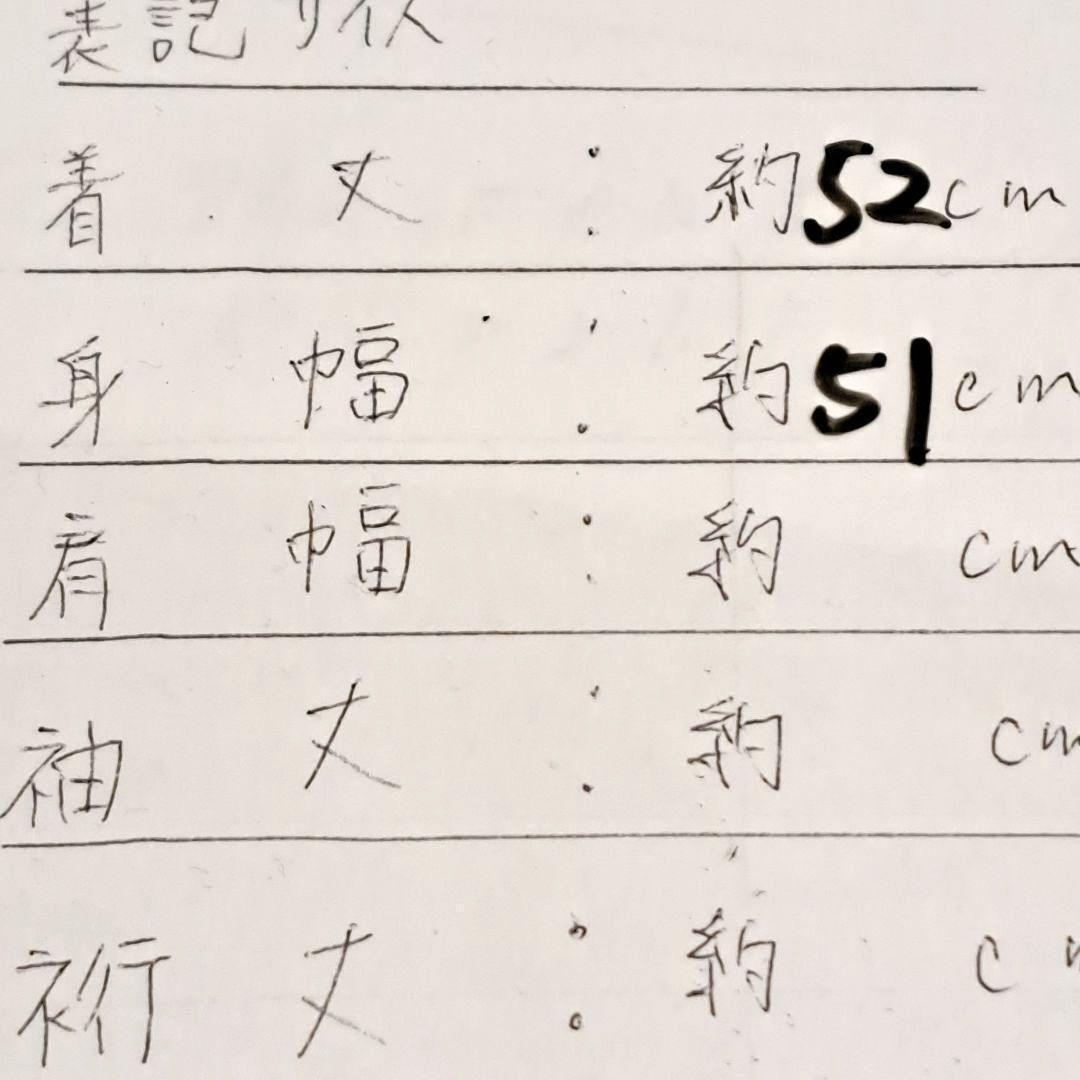 表記サイズ
着丈：約52cm
身幅：約51cm
肩幅：約 cm
袖丈：約 cm
裄丈：約 c